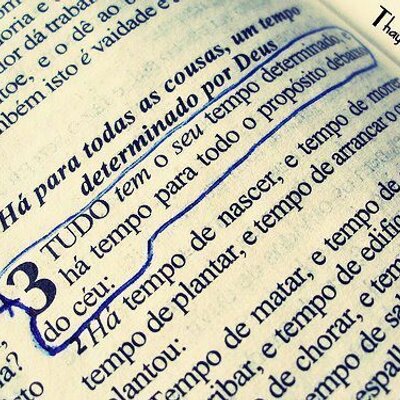 dor dá traba
toe, e o dê ao
mbém isto é vaidade e
Há para todas as cousas, um tempo
determinado por Deus
3 TUDO tem o seu tempo determinado, e
há tempo para todo o propósito debaixo
do céu:
2 Há tempo de nascer, e tempo de morre
tempo de plantar, e tempo de arrancar o
plantou:
Tempo de matar, e tempo de
ribar, e tempo de edifi
de chorar, e temp
tempo de sa
espal
ia?
isto
Thay